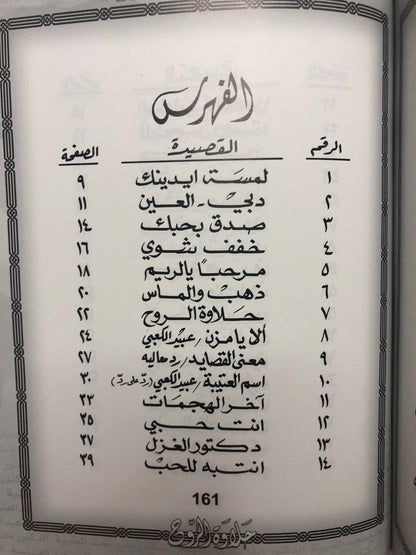 الفهرس
الرقم القصيدة الصفحة
١ لمسة ايدينك ٩
٢ دبي - العين ١١
٣ صدق بحبك ١٤
٤ خفف شوي ١٦
٥ مرحباً يالريم ١٨
٦ ذهب والماس ٢٠
٧ حلاوة الروح ٢٢
٨ ألا يا مزن / عبير الكعبي ٢٤
٩ معنى القصايد / رد عاليه ٢٧
١٠ اسم العتيبة / عبير الكعبي (ردّ على ردّ) ٣٠
١١ آخر الهجمات ٣٣
١٢ انت حبي ٣٥
١٣ دكتور الغزل ٣٧
١٤ انتبه للحب ٣٩
161
حلاوة الروح